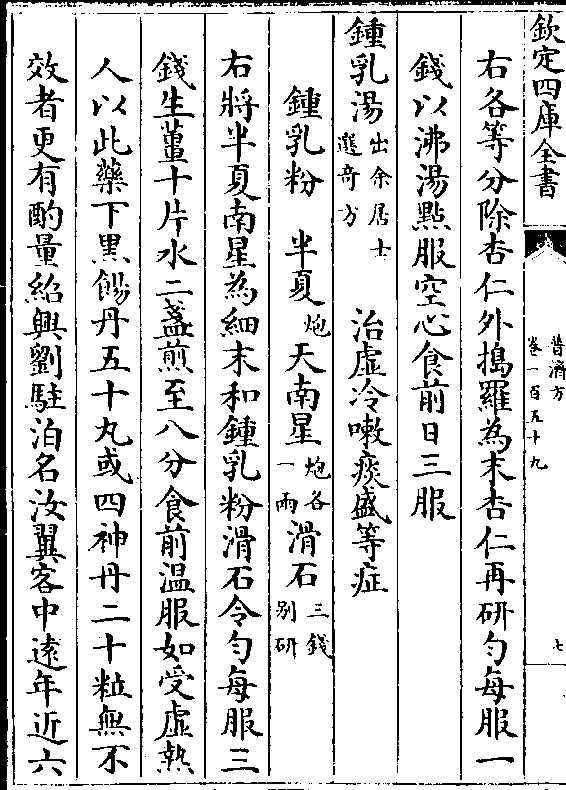 欽定四庫全書
普濟方
卷一百五十九
七
右各等分除杏仁外搗羅為末杏仁再研勻每服一
錢以沸湯點服空心食前日三服
鍾乳湯出余居士選奇方 治虛冷嗽痰盛等症
鍾乳粉 半夏炮 天南星炮各一兩 滑石三錢別研
右將半夏南星為細末和鍾乳粉滑石令勻每服三
錢生薑十片水二盞煎至八分食前溫服如受虛熱
人以此藥下黒錫丹五十丸或四神丹二十粒無不
效者更有酌量紹興劉駐泊名汝翼客中逺年近六